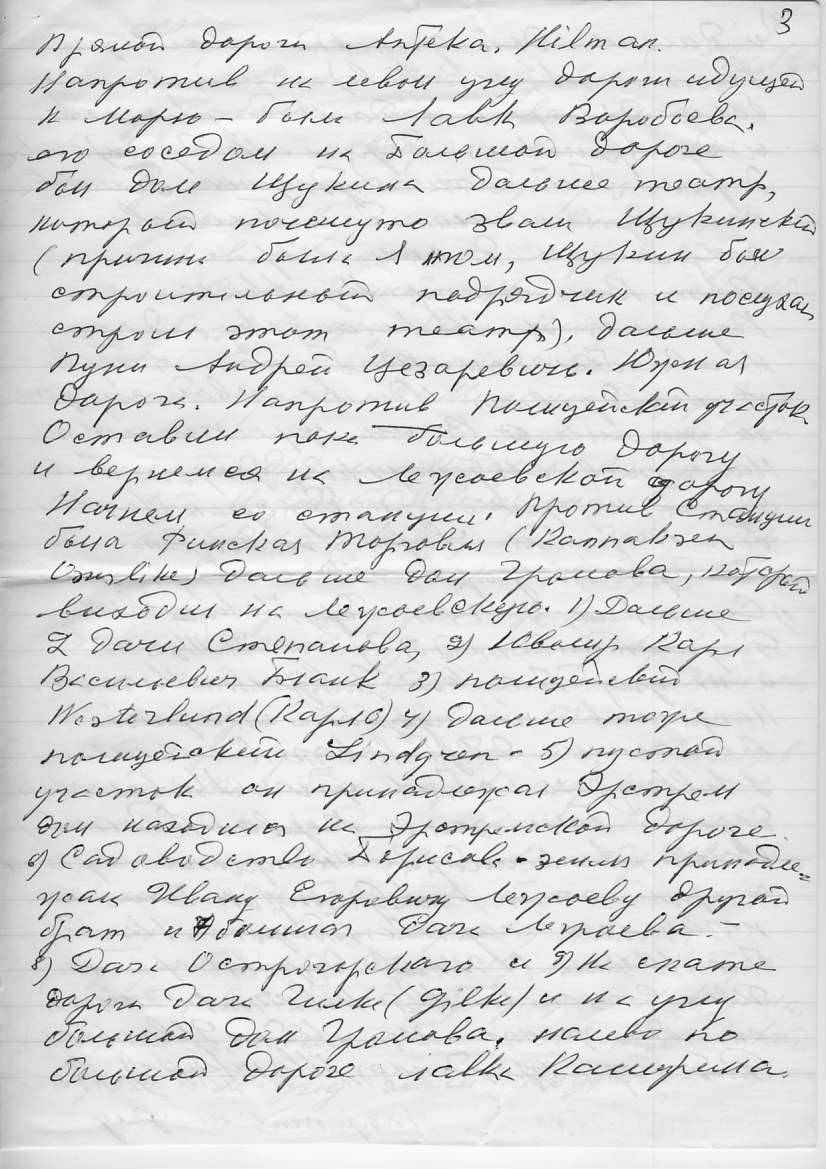 3
Прямой дороги Аптека. Hilman.
Напротив на левом углу дороги идущей
к морю – была Лавк Воробьева.
его соседом на Большой дороге
был дом Щукина дальше театр,
который почемуто звали Щукинский
(причина была в том, Щукин был
строительный подрядчик и
строил этот театр). дальше
Пуни Андрей Цезаревич. Южная
дорога. Напротив Полицейский участок
Оставим пока большую дорогу
и вернемся на дорогу
Начнем со станции. Против Станции
была Финская Торговля (
Osuusliike) дальше дом Громова, который
выходил на 1) Дальше
2 дачи Степанова, 2) Ювелир Карл
Васильевич Бланк 3) полицейский
Westerlund (Карло) 4) дальше тоже
полицейский Lindgren – 5) пустой
участок он принадлежал Экстрем
дом находился на дороге.
6) Садоводство Борисова – земля принадле=
жала Ивану Егоровичу другой
брат и 7 большая Дача –
8) Дача Острогорского и 9) На скате
дороги дача Гилке (Gilke) и на углу
большой дом Громова. налево по
большой дороге лавка Кашурина.